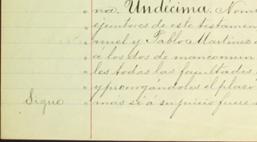 na. Undécima. Nom
ejecutores de este testamen
nuel y Pablo Martinez
á los dos de mancomun
les todas las facultades,
y prorrogándoles el plazo
mas si á su juicio fuere
Sigue